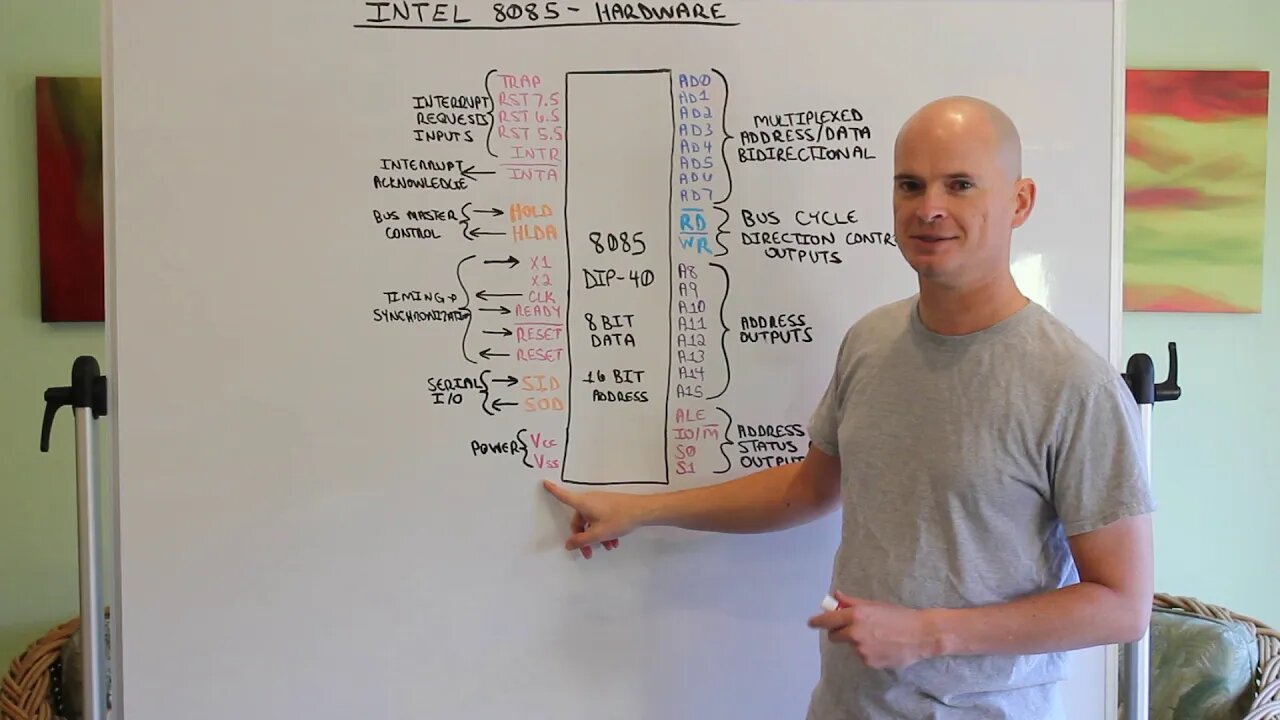 INTEL 8085 - HARDWARE
INTERRUPT
REQUESTS
INPUTS
TRAP
RST 7.5
RST 6.5
RST 5.5
INTR
INTERRUPT
ACKNOWLEDGE
INTA
BUS MASTER
CONTROL
HOLD
HLDA
TIMING +
SYNCHRONIZATION
X1
X2
CLK
READY
RESET
RESET
SERIAL
I/O
SID
SOD
POWER
Vcc
Vss
8085
DIP-40
8 BIT
DATA
16 BIT
ADDRESS
AD0
AD1
AD2
AD3
AD4
AD5
AD6
AD7
MULTIPLEXED
ADDRESS/DATA
BIDIRECTIONAL
RD
WR
BUS CYCLE
DIRECTION CONTR
OUTPUTS
A8
A9
A10
A11
A12
A13
A14
A15
ADDRESS
OUTPUTS
ALE
IO/M
S0
S1
ADDRESS
STATUS
OUTPUT